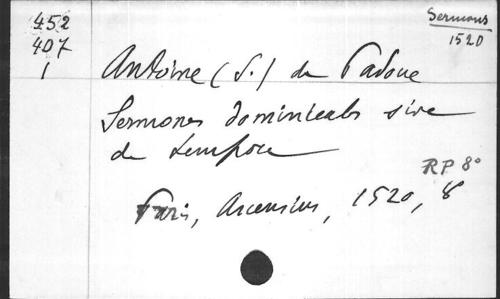 452
407
1
Sermons
1520
Antoine (S.) de Padoue
Sermones dominicales sive
de tempore
RP 8°
Paris, Ascensius, 1520, 8